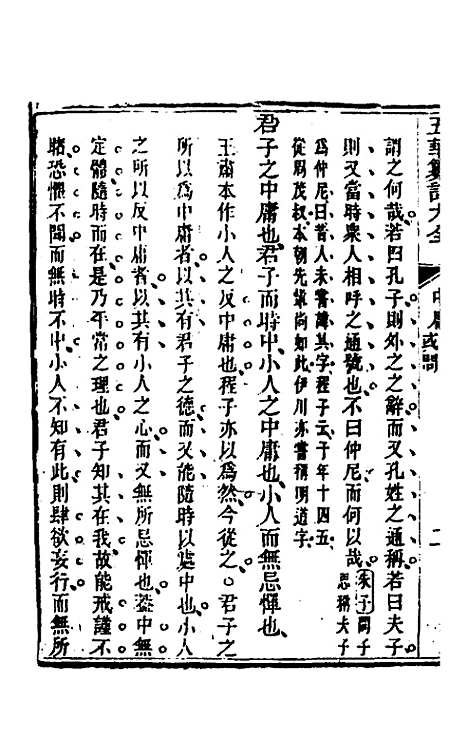 五華纂訂大全
中庸或問
謂之何哉若曰孔子則外之之辭而又孔姓之通稱若曰夫子
則又當時衆人相呼之通號也不曰仲尼而何以哉朱子問子思稱夫子
爲仲尼曰昔人未嘗諱其字程子云予年十四五
從周茂叔本朝先輩尚如此伊川亦嘗稱明道字
君子之中庸也君子而時中小人之中庸也小人而無忌憚也
王肅本作小人之反中庸也程子亦以爲然今從之○君子之
所以爲中庸者以其有君子之德而又能隨時以處中也小人
之所以反中庸者以其有小人之心而又無所忌憚也葢中無
定體隨時而在是乃平常之理也君子知其在我故能戒謹不
睹恐懼不聞而無時不中小人不知有此則肆欲妄行而無所